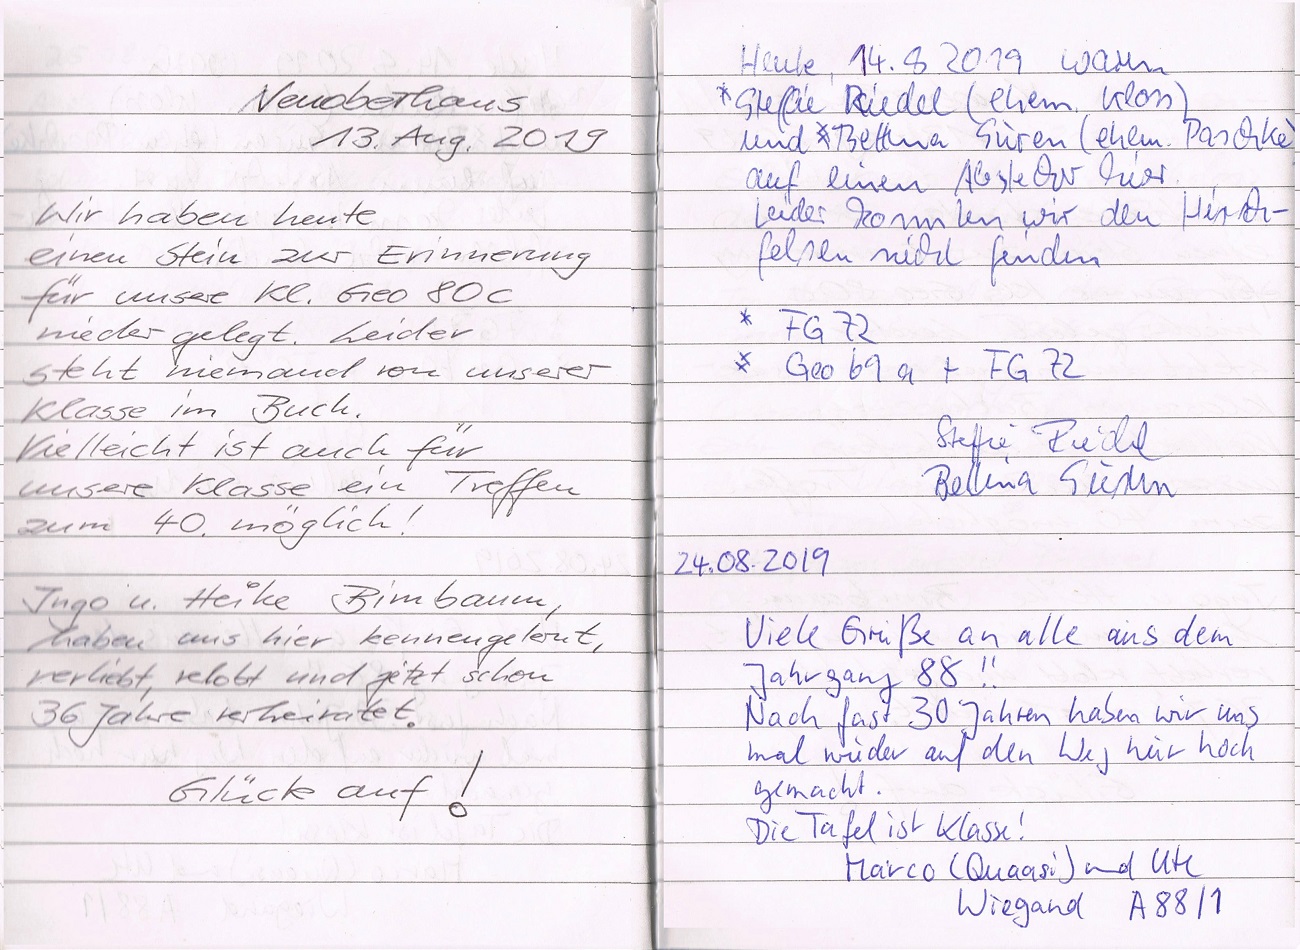 Neuoberhaus
13. Aug. 2019
Wir haben heute
einen Stein zur Erinnerung
für unsere Kl. Geo 80c
nieder gelegt. Leider
steht niemand von unserer
Klasse im Buch.
Vielleicht ist auch für
unsere Klasse ein Treffen
zum 40. möglich!
Ingo u. Heike Birnbaum,
haben uns hier kennengelernt,
verliebt, velobt und jetzt schon
36 Jahre verheiratet.
Glück auf!
Heute, 14.8 2019 waren
*Steffie Riedel (ehem. Kloss)
und *Bettina Süren (ehem. Paschke)
auf einen Abstecher hier.
Leider konnten wir den Hirsch-
felsen nicht finden
* FG 72
* Geo 69 a + FG 72
Steffie Riedel
Bettina Süren
24.08.2019
Viele Grüße an alle aus dem
Jahrgang 88 !!
Nach fast 30 Jahren haben wir uns
mal wieder auf den Weg hier hoch
gemacht.
Die Tafel ist Klasse!
Marco (Quaasi) und Ute
Wiegand A88/1